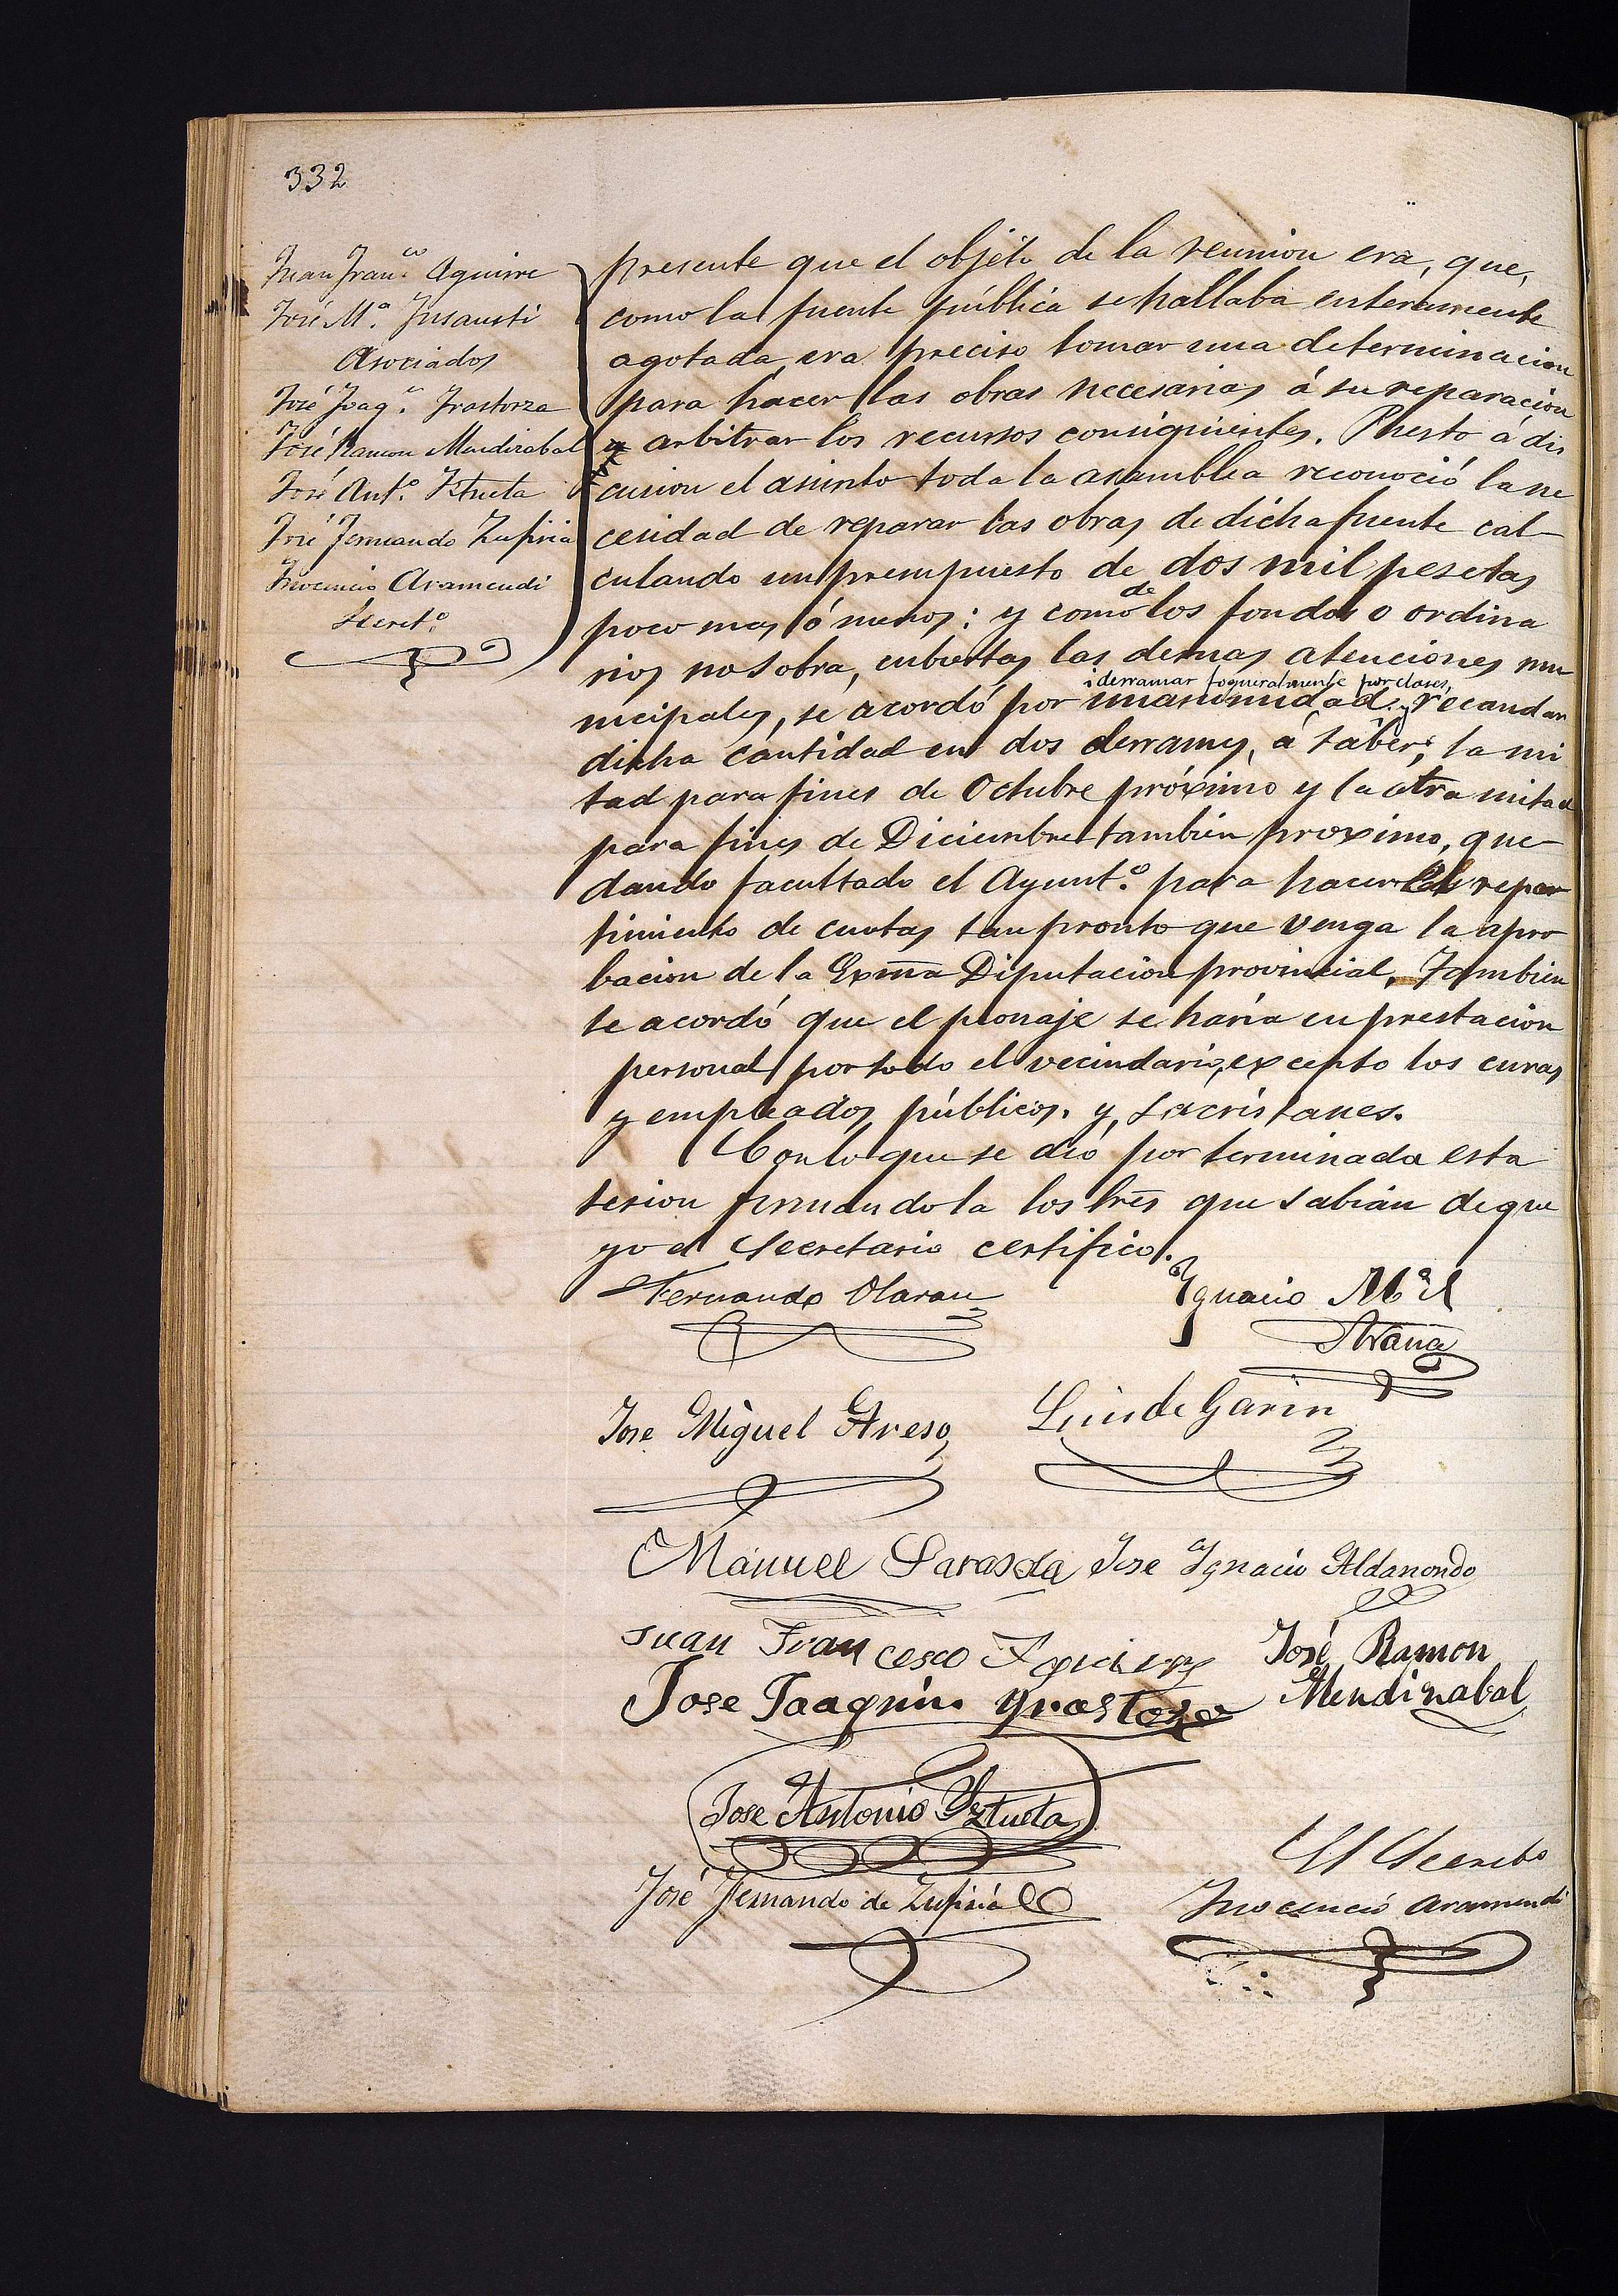 332
Juan Fran.co Aguirre
José M.a Insausti
Asociados
José Joaq.n Irastorza
José Ramon Mendizabal
José Ant.o Iztueta
José Fernando Zufiria
Inocencio Aramendi
Secret.o
presente que el objéto de la reunion era, que,
como la fuente pública se hallaba enteramente
agotada, era preciso tomar una determinacion
para hacer las obras necesarias á su reparacion
y arbitrar los recursos consiguientes. Puesto á dis
cusion el asunto toda la asamblea reconoció la ne
cesidad de reparar las obras de dicha fuente cal-
culando un presupuesto de dos mil pesetas
poco mas ó menos: y como de los fondos ordina
rios no sobra, cubiertas las demas atenciones mu
nicipales, se acordó por unanimidad derramar fogueralmente por clases, y recaudar
dicha cantidad en dos derramas, á saber; la mi
tad para fines de Octubre próximo y la otra mitad
para fines de Diciembre tambien proximo, que-
dando facultado el Ayunt.o para hacer el repar
timiento de cuotas tan pronto que venga la apro
bacion de la Exma Diputacion provincial. Tambien
se acordó que el peonaje se haria en prestacion
personal por todo el vecindario, excepto los curas
y empleados públicos. y, sacristanes.
Con lo que se dió por terminada esta
sesion firmandola los Sres que sabian de que
yo el Secretario certifico.
Fernando Olaran
Ignacio M.a
Arana
Jose Miguel Areso
Luis de Garin
Manuel Sarasola Jose Ignacio Aldanondo
Juan Francesco Aguirre
José Ramon
Mendizabal
Jose Joaquin Yrastorza
Jose Antonio Yztueta
José Fernando de Zufiria
El Secreto
Inocencio Aramendi